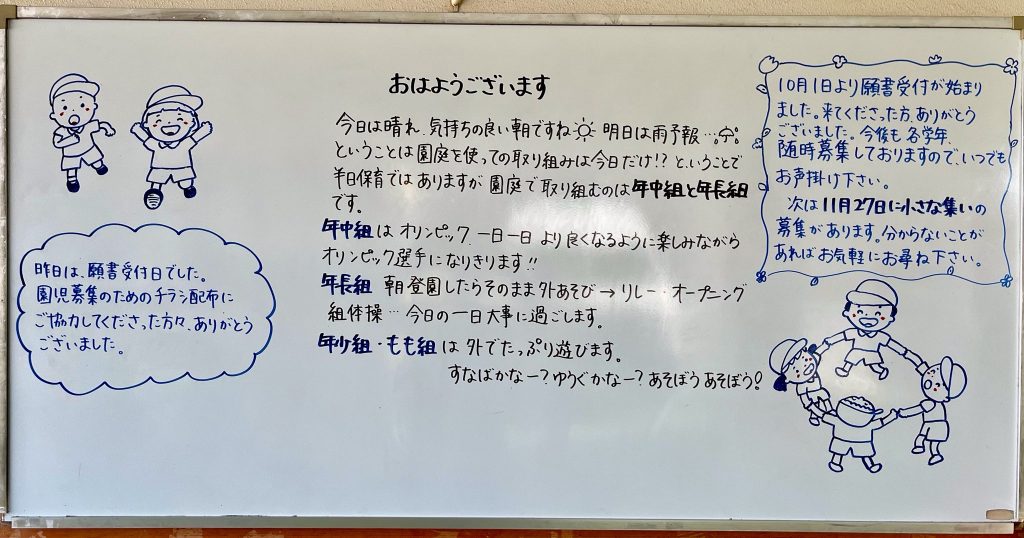 おはようございます
今日は晴れ、気持ちの良い朝ですね 明日は雨予報…
ということは園庭を使っての取り組みは今日だけ!? ということで
半日保育ではありますが 園庭で取り組むのは年中組と年長組
です。
年中組は オリンピック、一日一日 より良くなるように楽しみながら
オリンピック選手になりきります!!
年長組 朝登園したらそのまま外あそび→リレー・オープニング
組体操… 今日の一日大事に過ごします。
年少組・もも組は 外でたっぷり遊びます。
すなばかなー?ゆうぐかなー?あそぼうあそぼう!
昨日は、願書受付日でした。
園児募集のためのチラシ配布に
ご協力してくださった方々、ありがとう
ございました。
10月1日より願書受付が始まり
ました。来てくださった方、ありがとう
ございました。今後も 各学年、
随時募集しておりますので、いつでも
お声掛け下さい。
次は11月27日に小さな集いの
募集があります。分からないことが
あればお気軽にお尋ね下さい。